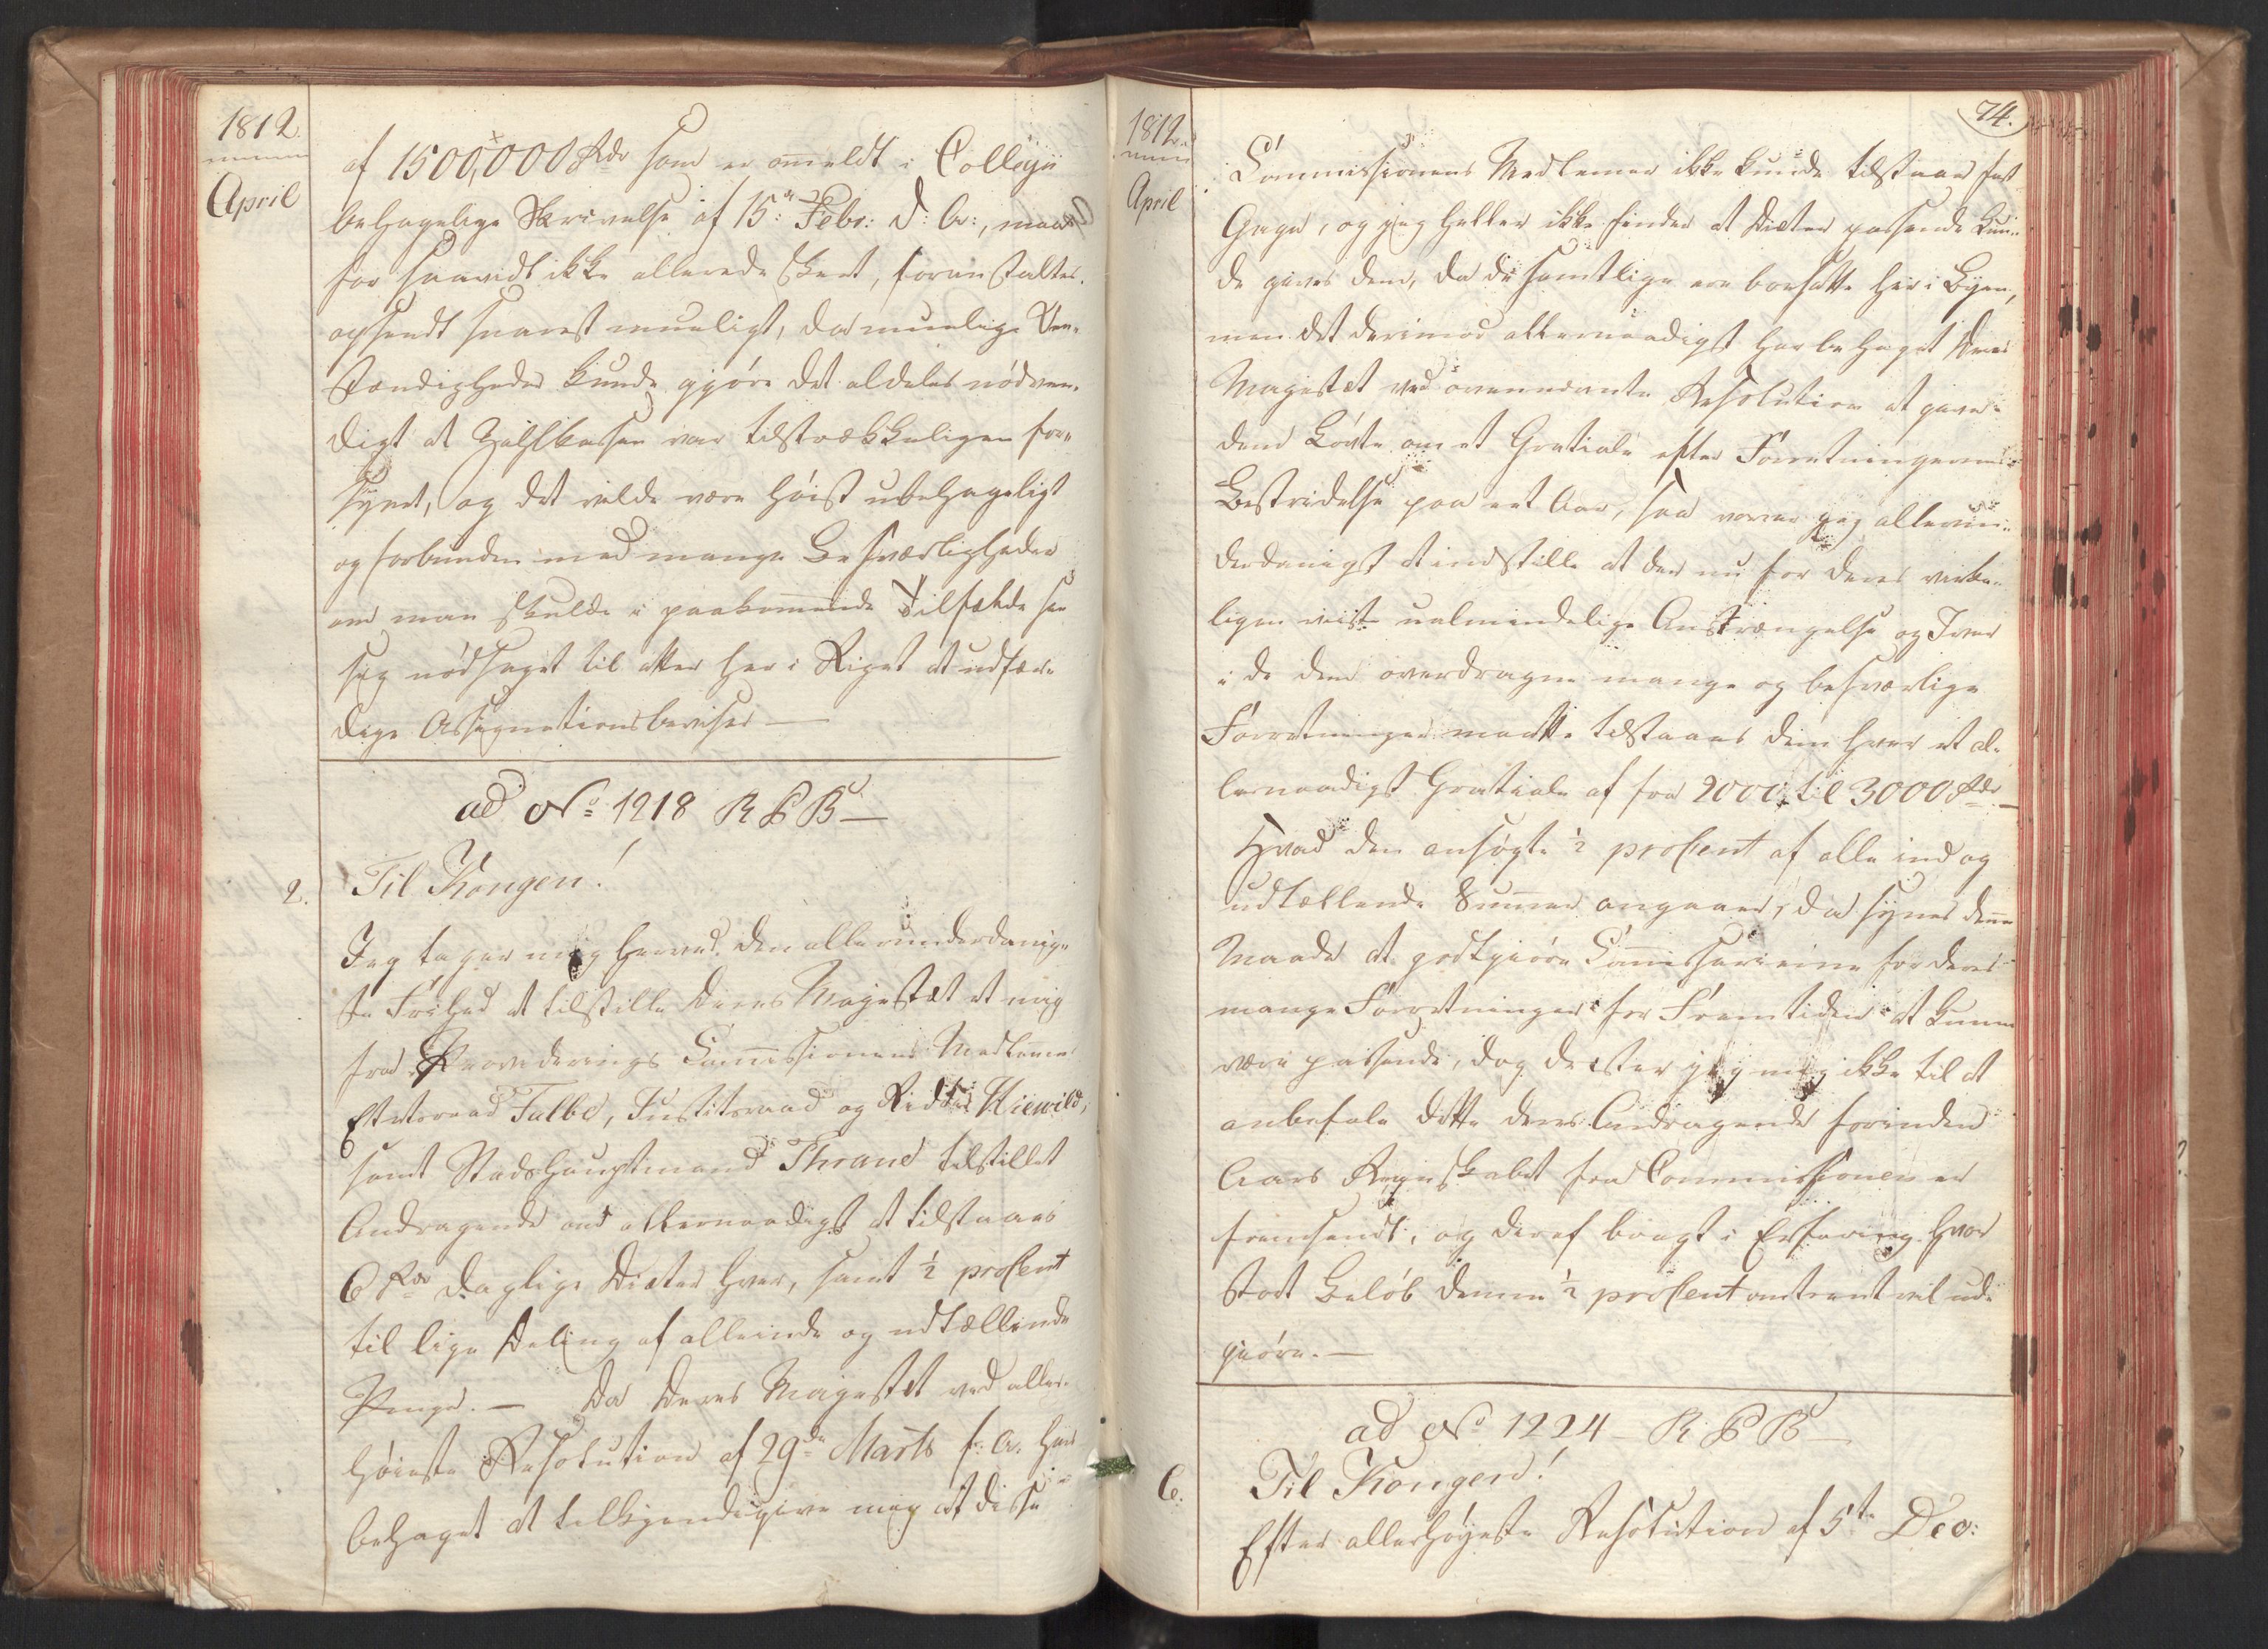 1812
April
af 1500,000 Rdr som er om̄eldt i Collegii
behagelige Skrivelse af 15de Febr: d: A:, maae
for saavidt ikke allerede skeet, foranstaltes
opsendt snarest mueligt, da muelige Um-
stændigheder kunde gjøre det aldeles nødven-
digt at Zahlkassen var tilstrækkeligen for-
synet, og det vilde være høist ubehageligt
og forbunden med mange Besværligheder
om man skulde i paakom̄ende Tilfælde see
sig nødsaget til atter her i Riget at udfær-
dige Assignationsbeviser —
ad No 1218 R P B —
2.
Til Kongen!
Jeg tager mig herved den allerunderdanig-
ste Frihed at tilstille Deres Majestæt et mig
fra Provederings Com̄issionens Medlem̄er
Etatsraad Falbe, Justitsraad og Ridder Kiewild,
samt Stadshauptmand Thrane tilstillet
Andragende om allernaadigst at tilstaaes
6 Rdr daglige Diæter hver, samt ½ proCent
til lige Deling af alle inde og udtællende
Penge. — Da Deres Majestæt ved aller-
høieste Resolution af 29de Marts f: A. har
behaget at tilkjendegive mig at disse
74.
1812.
April
Commissionens Medlemer ikke kunde tilstaaes fast
Gage, og jeg heller ikke finder at Diæter passende kun-
de gives dem, da de samtlige ere bosatte her i Byen,
men det derimod allernaadigst har behaget Deres
Majestæt ved ovennævnte Resolution at give
dem Løvte om et Gratiale efter Forretningernes
Bestridelse paa eet Aar, saa vover jeg allerun-
derdanigst at indstille at der nu for deres virke-
ligen viiste ualmindelige Anstrængelse og Iver
i de dem overdragne mange og besværlige
Forretninger maatte tilstaaes dem hver et al-
lernaadigst Gratiale af fra 2000 til 3000 Rdr —
Hvad den ansøgte ½ proCent af alle ind og
udtællende Sum̄er angaaer, da synes denne
Maade at godtgiøre Com̄issarierne for deres
mange Forretninger for Fremtiden at kunne
være passende, dog drister jeg mig ikke til at
anbefale dette deres Andragende forinden
Aars Regnskabet fra Commissionen er
fremsendt, og deraf bragt i Erfaring hvor
stort Beløb denne ½ proCent omtrent vil ud-
giøre. —
ad No 1224 — R P B —
6.
Til Kongen!
Efter allerhøyeste Resolution af 5te Dec: